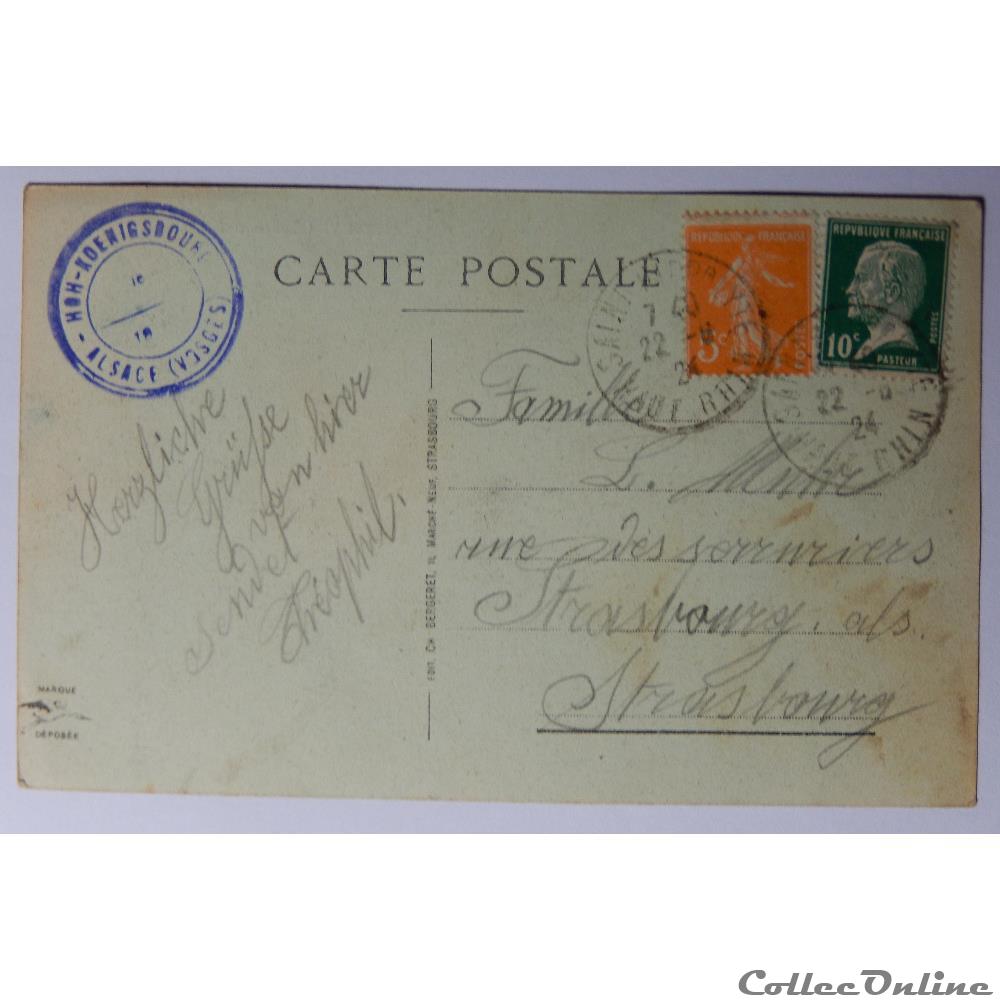 HOH-KOENIGSBOURG
- ALSACE (VOSGES) -
le
19
CARTE POSTALE
REPUBLIQUE FRANÇAISE
5c
POSTES
REPVBLIQVE FRANÇAISE
10c
PASTEUR
POSTES
7 50
22 -
24
HAUT RHIN
22 -
24
RHIN
Herzliche
Grüsse
von hier
sendet
Théophil.
EDIT. CH. BERGERET, 11, MARCHÉ-NEUF, STRASBOURG
Famille
L.
rue des serruriers
Strasbourg. als.
Strasbourg
MARQUE
DÉPOSÉE
CollecOnline